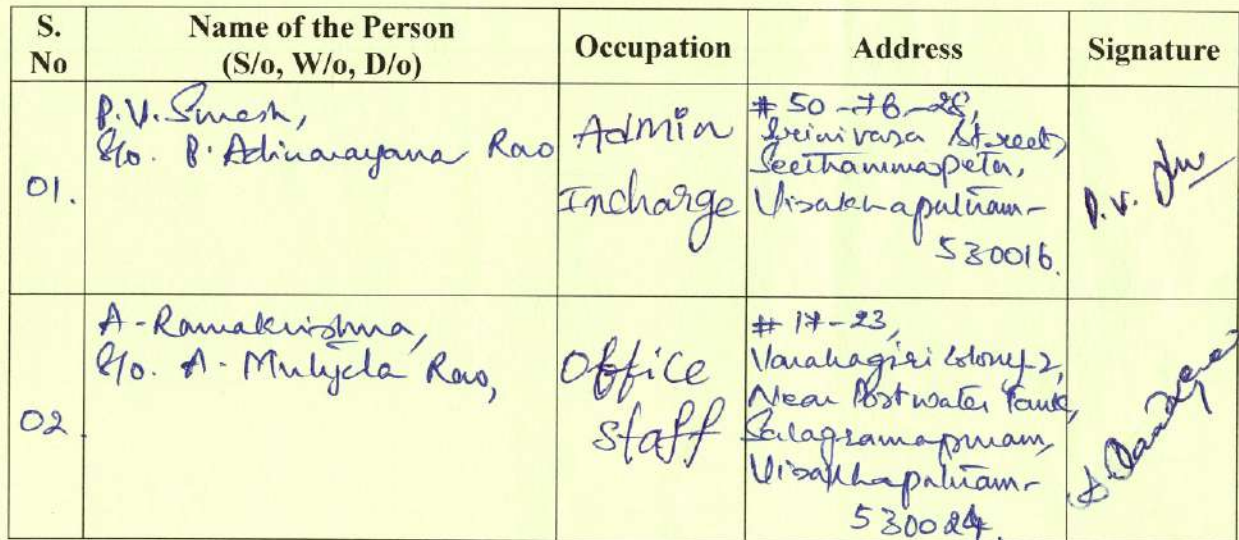 S. No
Name of the Person (S/o, W/o, D/o)
Occupation
Address
Signature
01.
P.V. Suresh,
S/o. P. Adinarayana Rao
Admin
Incharge
# 50-76-28,
Srinivasa Street,
Seethammapeta,
Visakhapatnam-
530016.
P.V.
02.
A. Ramakrishna,
S/o. A. Rao,
Office
Staff
# 17-23,
Varahagiri Colony-2,
Near Port water Tank,
Salagramapuram,
Visakhapatnam-
530024.